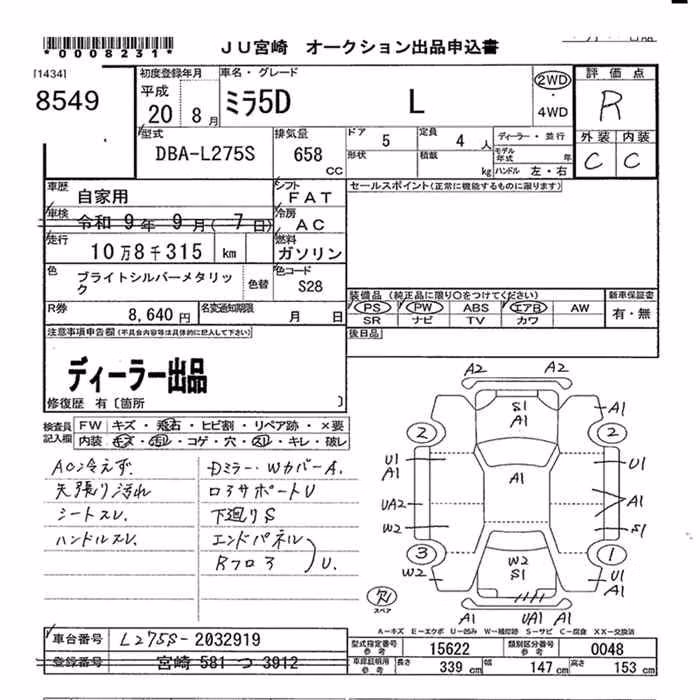 *0008231*
JU宮崎 オークション出品申込書
[1434]
8549
初度登録年月
平成
20 8月
車名・グレード
ミラ5D L
2WD
・
4WD
評価点
R
外装 内装
C C
型式
DBA-L275S
排気量
658
CC
ドア 5
定員 4 人
形状
積載 kg
ディーラー・並行
モデル年式 年
ハンドル 左・右
車歴
自家用
シフト
FAT
セールスポイント(正常に機能するものに限ります)
車検
令和 9年 9月( 7日)
冷房
AC
走行
10万8千315 km
燃料
ガソリン
色
ブライトシルバーメタリック
色替
色コード
S28
R券
8,640円
名変通知期限
月 日
装備品(純正品に限り〇をつけてください)
PS PW ABS エアB AW
SR ナビ TV カワ
新車保証書
有・無
後日品
注意事項申告欄(不具合内容等は具体的に記入して下さい)
ディーラー出品
修復歴 有〔箇所 〕
検査員記入欄
FW キズ・飛石・ヒビ割・リペア跡・×要
内装 キズ・汚れ・コゲ・穴・スレ・キレ・破レ
AC冷えず.
天張り汚れ
シートスレ.
ハンドルスレ.
Dミラー・WカバーA.
コアサポートU
下廻りS
エンドパネル
Rフロア
U.
A2 A2
S1
A1
A1
2 2
U1
A1
U1
A1
UA2
A1
W2
S1
3 1
W2
W2
S1
U1
A1
欠
スペア
A1 UA1 A1
A-キズ E-エクボ U-凹み W-補修跡 S-サビ C-腐食 XX-交換済
車台番号
L275S-2032919
登録番号
宮崎 581 つ 3912
型式指定番号
参考
15622
類別区分番号
参考
0048
車庫証明用
参考
長さ 339 cm
幅 147 cm
高さ 153 cm